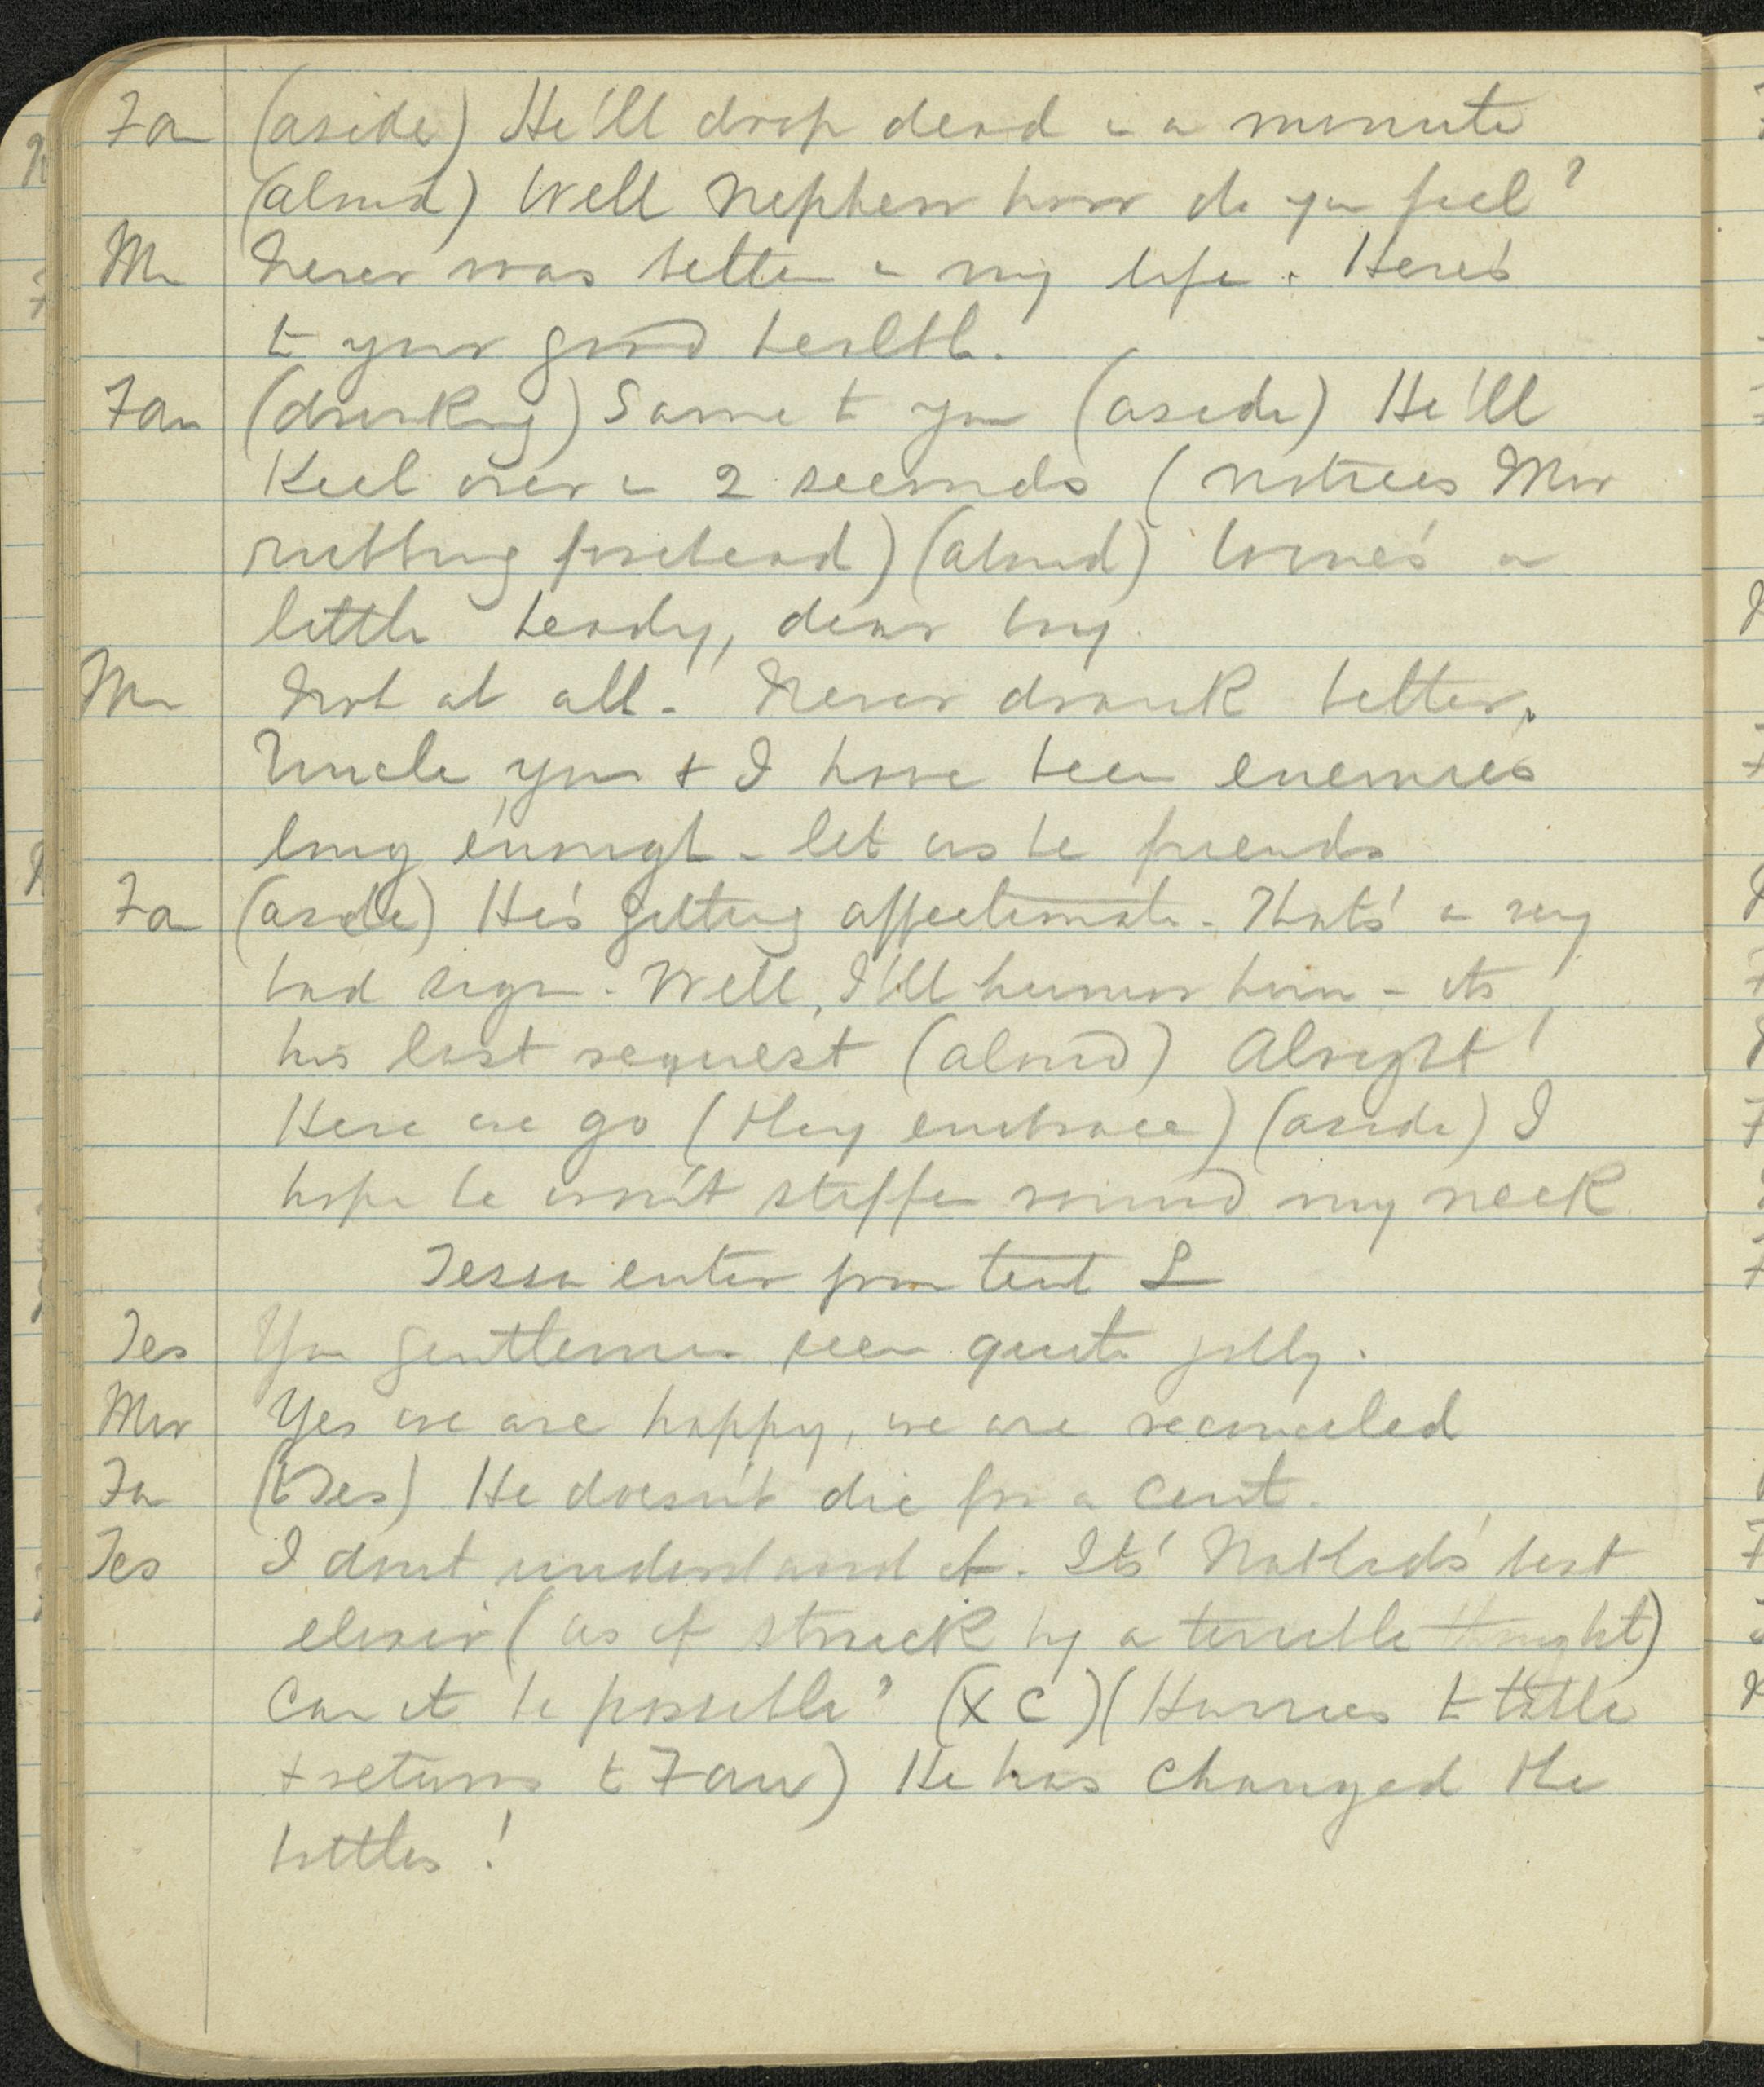 Fan (aside) He'll drop dead in a minute
(aloud) Well Nephew how do you feel?
Mu Never was better in my life. Here's
to your good health.
Fan (drinking) Same to you (aside) He'll
Keel over in 2 seconds (notices Mur
rubbing forehead) (aloud) Wine's a
little heady, dear boy.
Mu Not at all. Never drank better.
Uncle, you + I have been enemies
long enough - let us be friends
Fa (aside) He's getting affectionate. That's a very
bad sign. Well, I'll humor him - its
his last request (aloud) Alright!
Here we go (they embrace) (aside) I
hope he won't stiffen round my neck
Tessa enter from tent L
Tes You gentlemen seem quite jolly.
Mur Yes we are happy, we are reconciled
Fa (to Tes) He doesn't die for a cent.
Tes I dont understand it. Its' best
elixir (as if struck by a terrible thought)
Can it be possible? (X C) (Hurries to table
+ returns to Fan) He has changed the
bottles!